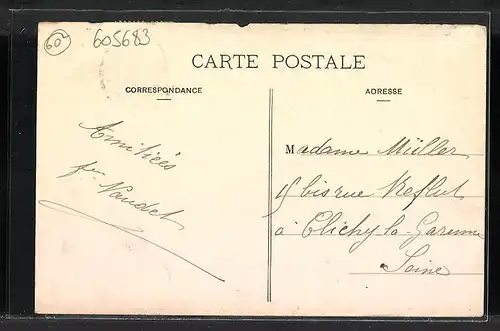 60
605683
CARTE POSTALE
CORRESPONDANCE
ADRESSE
Amitiées
Naudet
Madame Müller
bis rue
à Clichy-la-Garenne
Seine